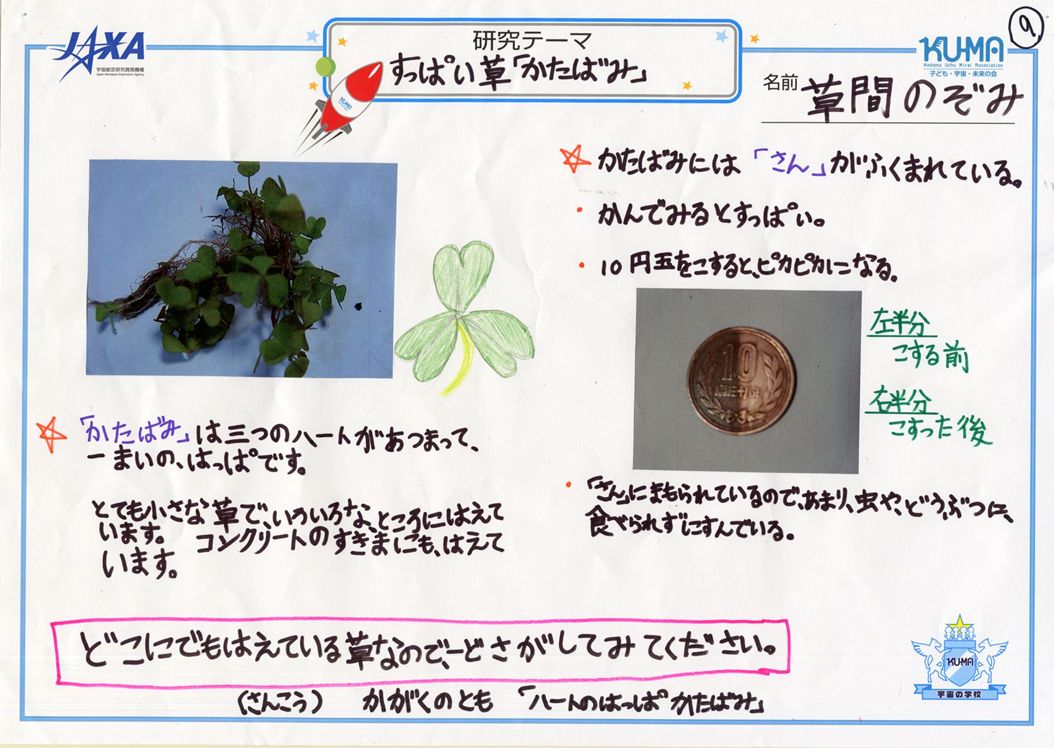 JAXA
宇宙航空研究開発機構
Japan Aerospace Exploration Agency
研究テーマ
すっぱい草「かたばみ」
KUMA
KU-MA
Kodomo Uchu Mirai Association
子ども・宇宙・未来の会
9
名前 草間のぞみ
「かたばみ」は三つのハートがあつまって、
一まいの、はっぱです。
とても小さな草で、いろいろな、ところにはえて
います。 コンクリートのすきまにも、はえて
います。
かたばみには「さん」がふくまれている。
・かんでみるとすっぱい。
・10円玉をこすると、ピカピカになる。
10
左半分
こする前
右半分
こすった後
・「さん」にまもられているので、あまり、虫や、どうぶつに、
食べられずにすんでいる。
どこにでもはえている草なので、一どさがしてみてください。
(さんこう) かがくのとも 「ハートのはっぱ かたばみ」
KU-MA
宇宙の学校